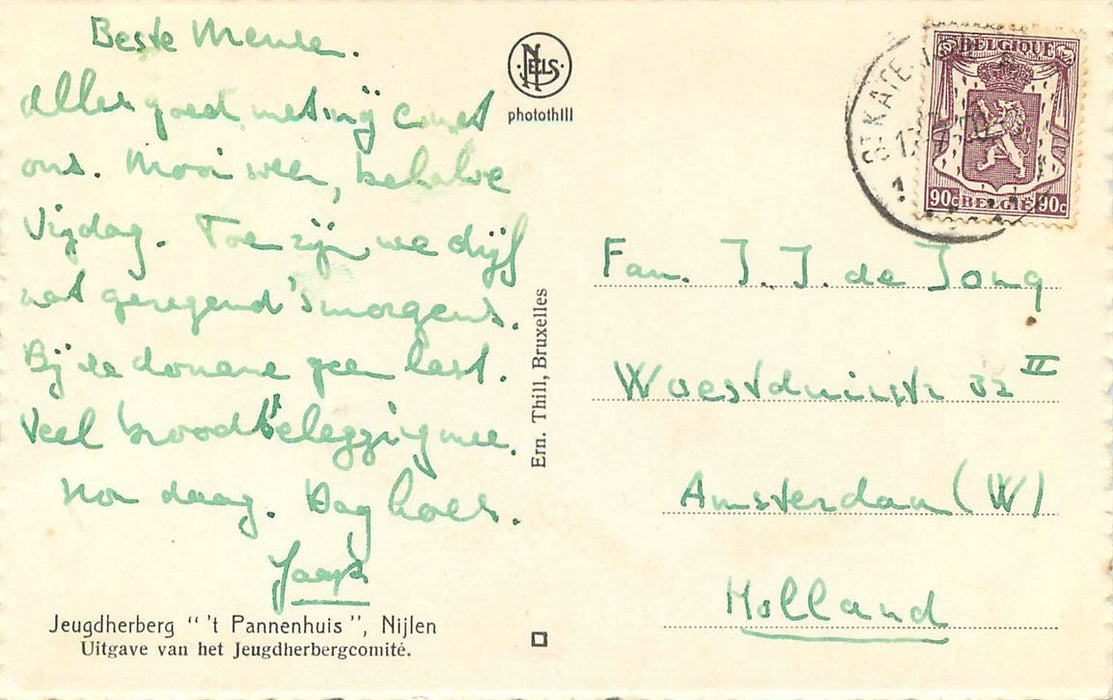 Beste Mensen.
Alles goed met mij
ons. Mooi weer, behalve
Vrijdag. Toen zijn we drijf
nat geregend 's morgens.
Bij de douane geen last.
Veel broodbelegging mee.
daag. Dag hoor.
Jaap
Jeugdherberg " 't Pannenhuis ", Nijlen
Uitgave van het Jeugdherbergcomité.
NELS
photothill
Ern. Thill, Bruxelles
BELGIQUE
90c BELGIE 90c
Fam. J. J. de Jong
Woestduinstr 32 II
Amsterdam (W)
Holland